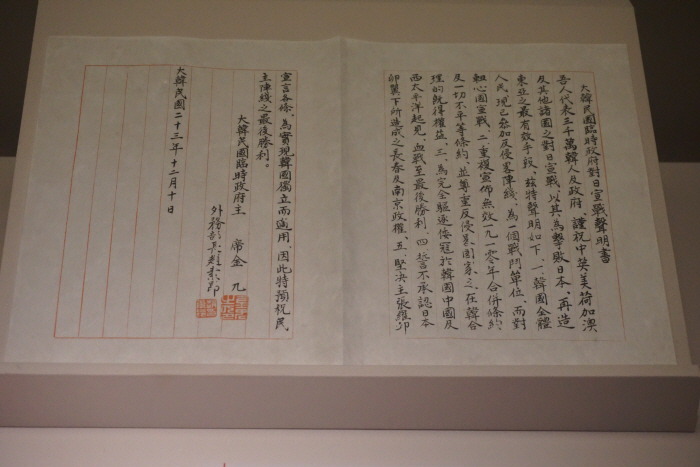 大韓民國臨時政府對日宣戰聲明書
吾人代表三千萬韓人及政府、謹祝中英美荷加澳
及其他諸國之對日宣戰、以其為擊敗日本、再造
東亞之最有效手段、玆特聲明如下、一、韓國全體
人民、現已參加反侵畧陣綫、為一個戰鬥單位、而對
軸心國宣戰、二、重複宣佈無效一九一〇年合併條約
及一切不平等條約、並尊重反侵畧國家之在韓合
理的既得權益、三、為完全驅逐倭寇於韓國中國及
西太平洋起見、血戰至最後勝利、四、誓言不承認日本
卵翼下所造成之長春及南京政權、五、堅決主張羅邱
宣言各條、為實現韓國獨立而適用、因此特預祝民
主陣綫之最後勝利。
大韓民國臨時政府主 席 金 九
外務部長 趙素昂
大韓民國二十三年十二月十日